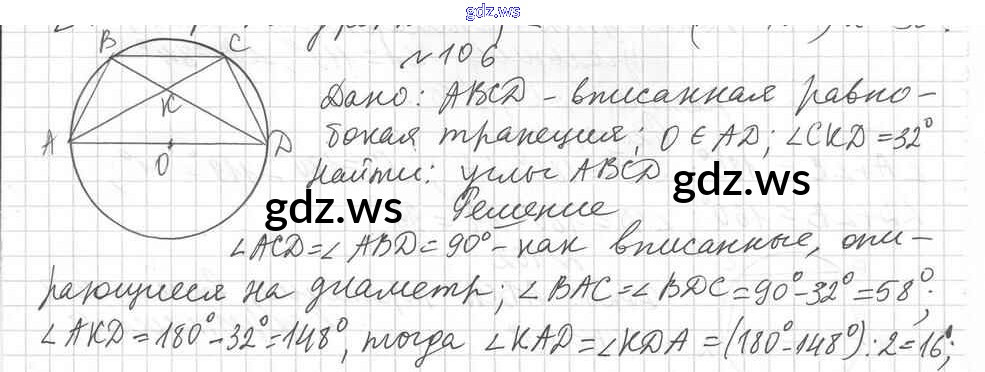 gdz.ws
№106
B C
Дано: ABCD - вписанная равно-
K
A D
бокая трапеция; O ∈ AD; ∠CKD = 32°
O
Найти: углы ABCD
gdz.ws
gdz.ws
Решение
∠ACD = ∠ABD = 90° - как вписанные, опи-
рающиеся на диаметр; ∠BAC = ∠BDC = 90° - 32° = 58°;
∠AKD = 180° - 32° = 148°, тогда ∠KAD = ∠KDA = (180° - 148°) : 2 = 16°;